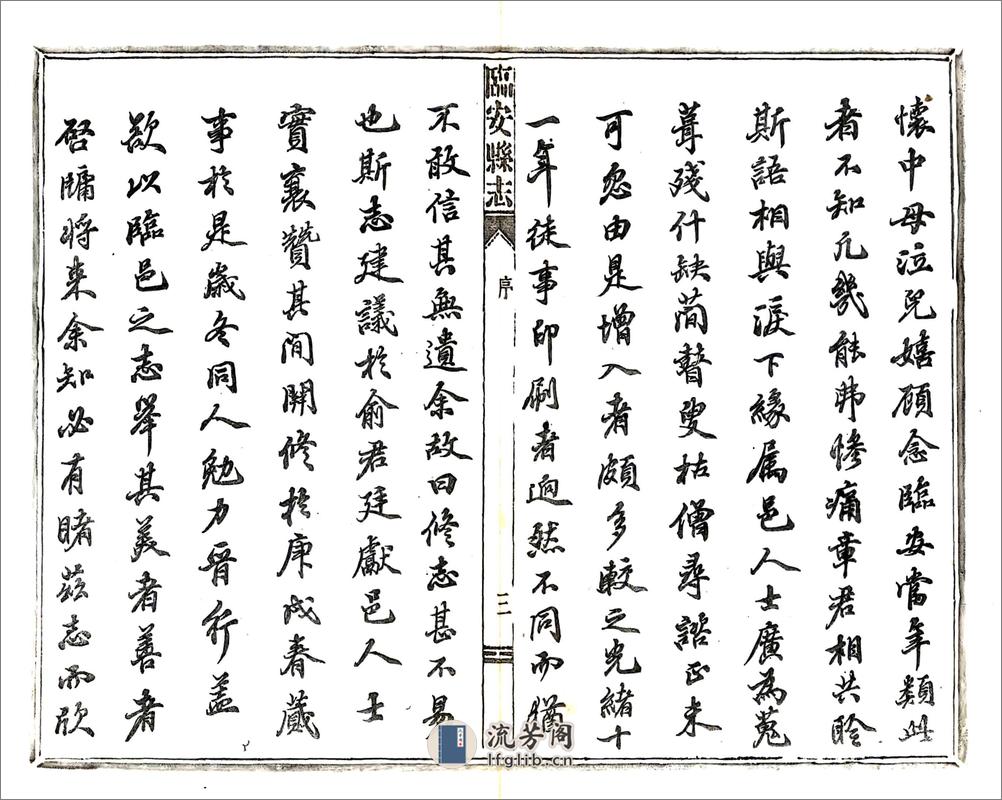 懷中母泣兒嬉顧念臨安當年類此
者不知凡幾能弗慘痛章君相共聆
斯語相與淚下緣屬邑人士廣為蒐
葺殘什缺簡瞽叟枯僧尋諮正未
可忽由是增入者頗多較之光緒十
一年徒事印刷者迥然不同而猶
臨安縣志
序
三
不敢信其無遺余故曰修志甚不易
也斯志建議於俞君廷獻邑人士
實襄贊其間開修於庚戌春蕆
事於是歲冬同人勉力晉行蓋
欲以臨邑之志舉其美者善者
啓牖將來余知必有睹茲志而欣
流芳阁
lfglib.cn